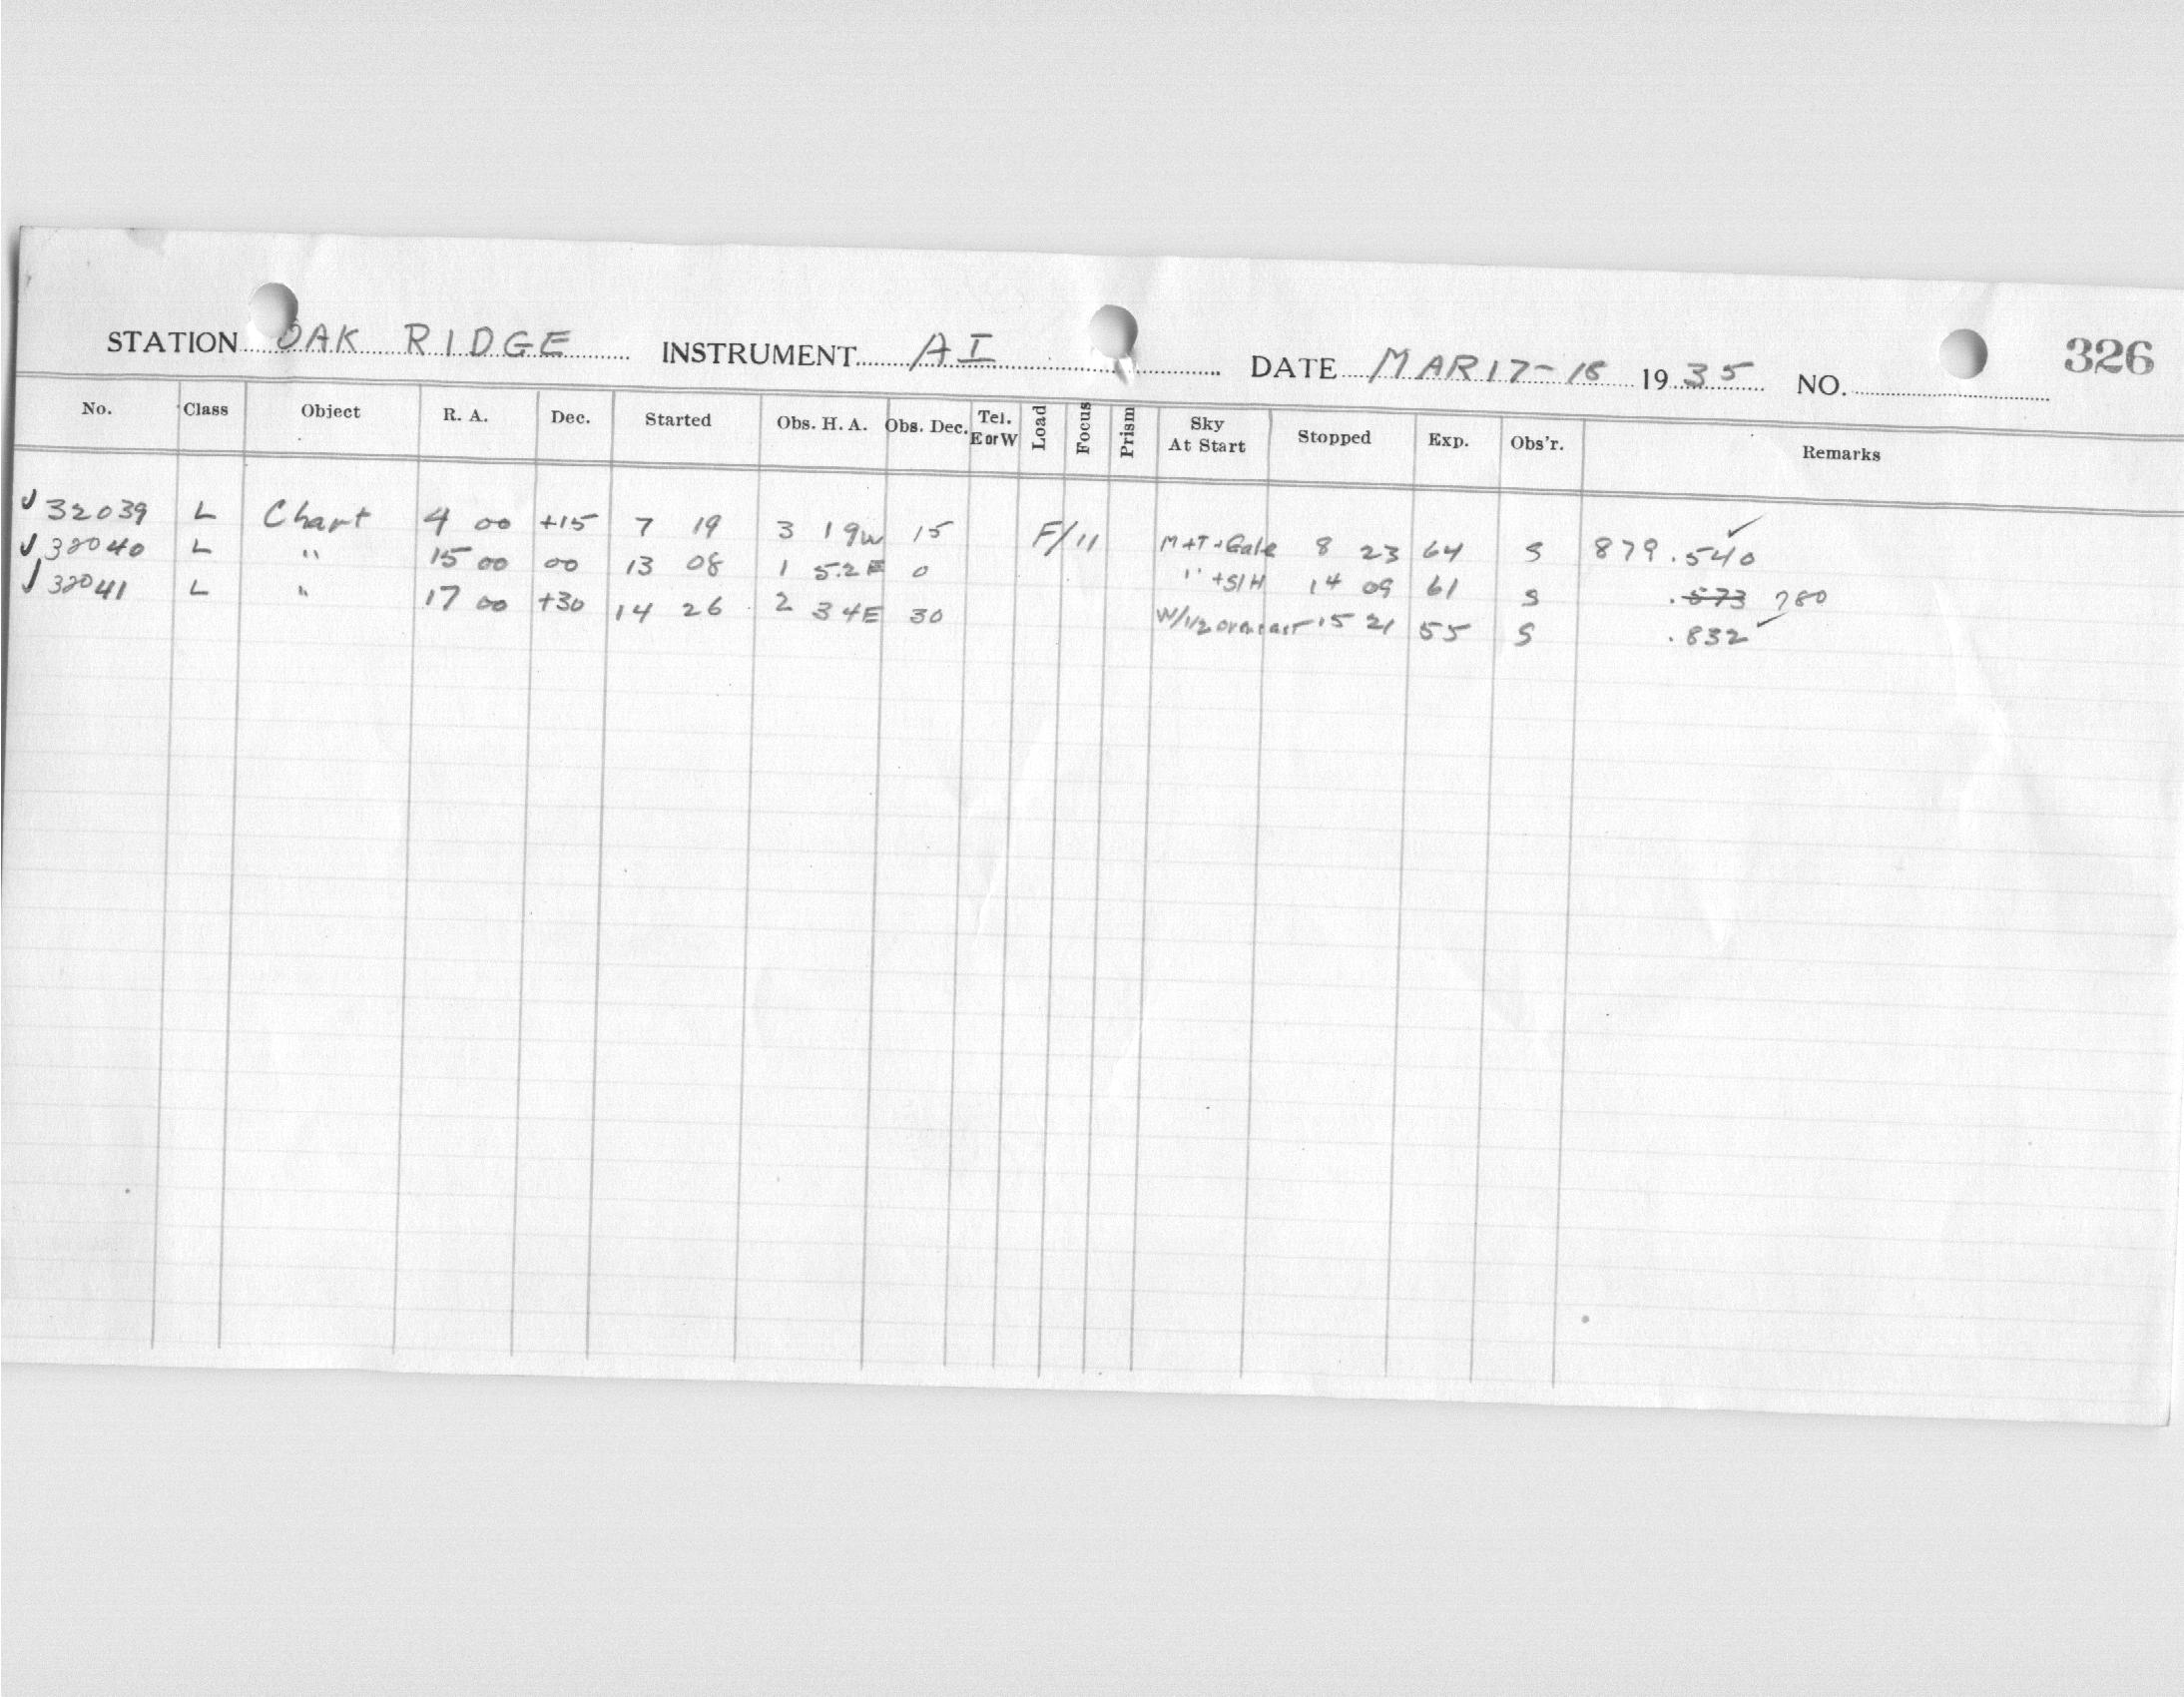 STATION OAK RIDGE INSTRUMENT AI DATE MAR 17-18 1935 NO. 326
No. Class Object R. A. Dec. Started Obs. H. A. Obs. Dec. Tel. E or W Load Focus Prism Sky At Start Stopped Exp. Obs'r. Remarks
✓ 32039 L Chart 4 00 +15 7 19 3 19W 15 F/11 M+T+Gale 8 23 64 S 879.540 ✓
✓ 32040 L " 15 00 00 13 08 1 52E 0 " +S/H 14 09 61 S .573 780
✓ 32041 L " 17 00 +30 14 26 2 34E 30 W/1/2 overcast 15 21 55 S .832 ✓